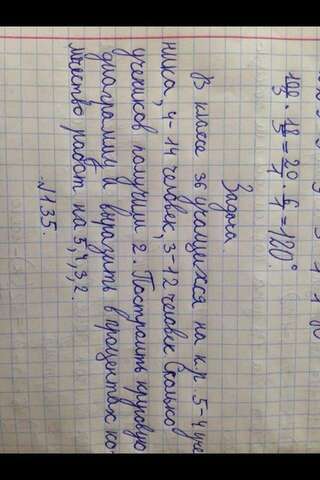 100/5 · 18/5 = 20/1 · 6/1 = 120°
Задача.
В классе 36 учащихся на к.р. 5-4 уче-
ника, 4-14 человек, 3-12 человек Сколько
учеников получили 2. Построить круговую
диаграмму и выразить в процентах ко-
личество работ на 5, 4, 3, 2.
№135.